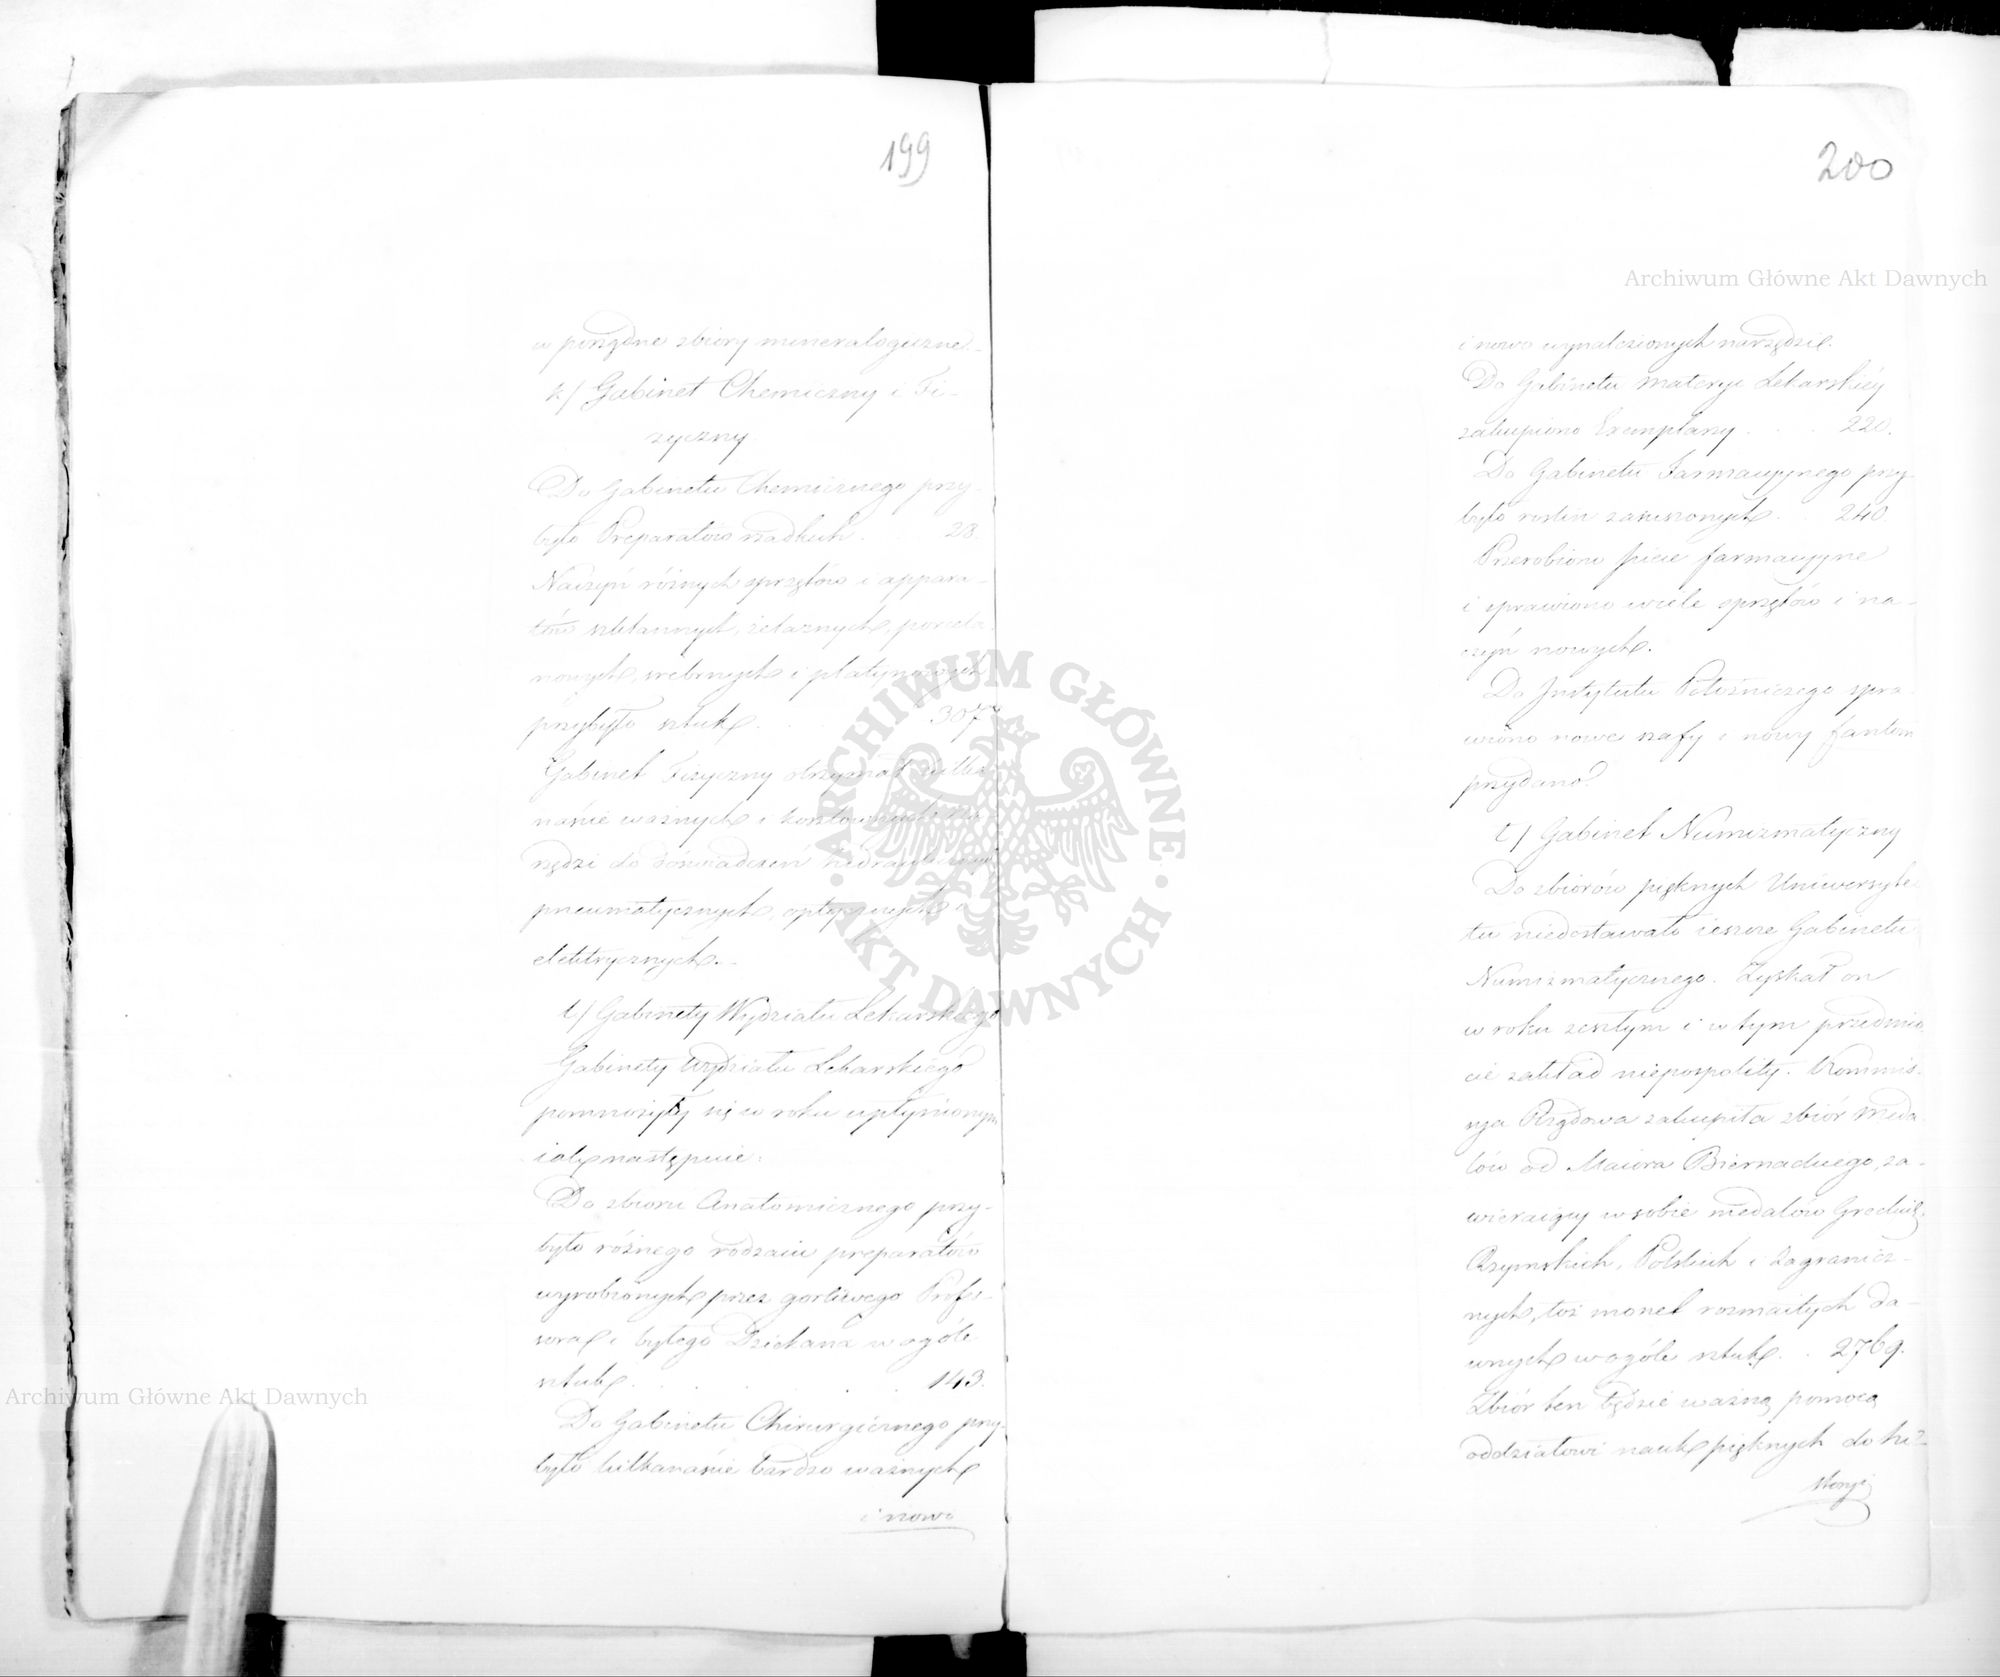 199
w porządne zbiory mineralogiczne.
k/ Gabinet Chemiczny i Fi-
zyczny
Do Gabinetu Chemicznego przy-
było Preparatów rzadkich . 28.
Naczyń różnych sprzętów i appara-
tów szklannych, żelaznych, porcela-
nowych, srebrnych i platynowych
przybyło sztuk . . 307
Gabinet Fizyczny otrzymał kilka-
naście ważnych i kosztownych na-
rzędzi do doświadczeń hidraulicznych
pneumatycznych, optycznych i
elektrycznych.
l/ Gabinety Wydziału Lekarskiego
Gabinety Wydziału Lekarskiego
pomnożyły się w roku upłynionym
iak następuie:
Do zbioru Anatomicznego przy-
było różnego rodzaiu preparatów
wyrobionych przez gorliwego Profes-
sora i byłego Dziekana w ogóle
sztuk . . . . . 143.
Do Gabinetu Chirurgicznego przy-
było kilkanaście bardzo ważnych
i nowo
200
i nowo wynalezionych narzędzi.
Do Gabinetu materyi Lekarskiéy
zakupiono Exemplarzy . . . 220.
Do Gabinetu Farmacyjnego przy-
było roślin zasuszonych . . 240.
Przerobiono piece farmacyjne
i sprawiono wiele sprzętów i na-
czyń nowych.
Do Instytutu Położniczego spra-
wiono nowe szafy i nowy fantom
przydano.
ł/ Gabinet Numizmatyczny
Do zbiorów pięknych Uniwersyte-
tu niedostawało ieszcze Gabinetu
Numizmatycznego. Zyskał on
w roku zeszłym i w tym przedmio-
cie zakład niepospolity. Kommis-
sya Rządowa zakupiła zbiór meda-
lów od Maiora Biernackiego, za-
wieraiący w sobie medalów Greckich,
Rzymskich, Polskich i Zagranicz-
nych, toż monet rozmaitych da-
wnych w ogóle sztuk . . 2769.
Zbiór ten będzie ważną pomocą
oddziałowi nauk pięknych do hi-
storyi
Archiwum Główne Akt Dawnych
Archiwum Główne Akt Dawnych
ARCHIWUM GŁÓWNE · AKT DAWNYCH ·